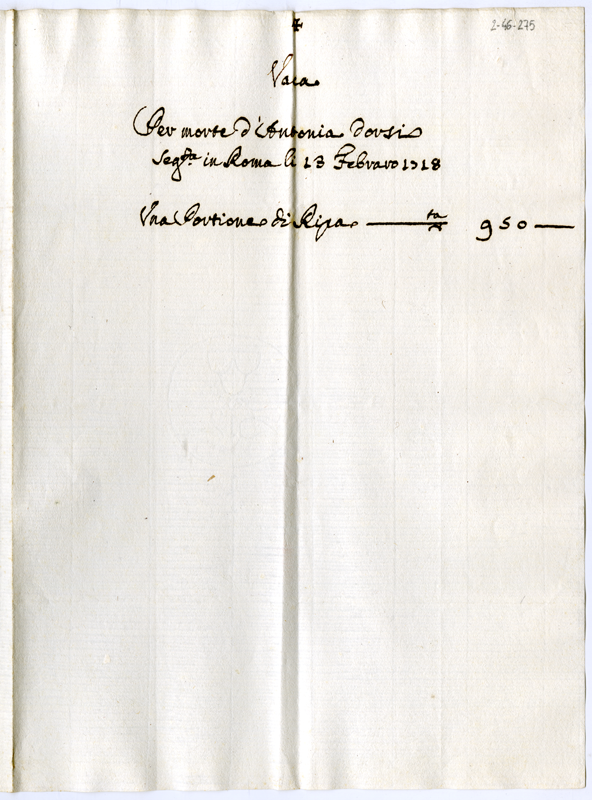 2-46-275
Vaca
Per morte d'Antonia Dorsi
seg.ta in Roma li 13 Febraro 1718
Una Portione di Ripa 950